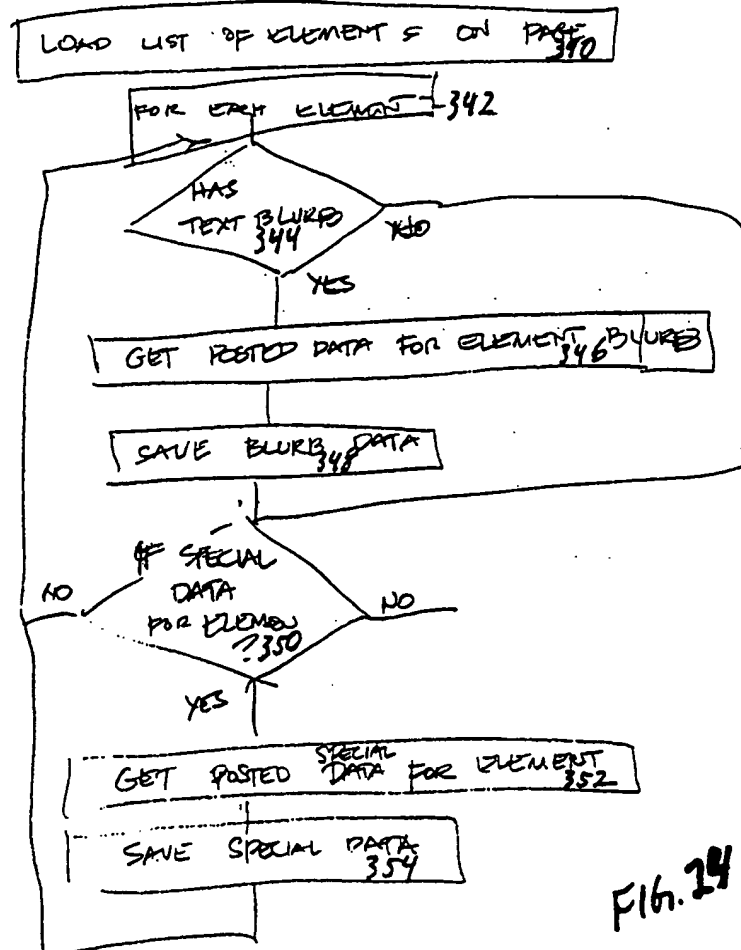 LOAD LIST OF ELEMENTS ON PAGE
340
FOR EACH ELEMENT
342
HAS
TEXT BLURB
344
NO
YES
GET POSTED DATA FOR ELEMENT BLURB
346
SAVE BLURB DATA
348
IF SPECIAL
DATA
FOR ELEMEN
? 350
NO
NO
YES
GET POSTED SPECIAL DATA FOR ELEMENT
352
SAVE SPECIAL DATA
354
FIG. 24